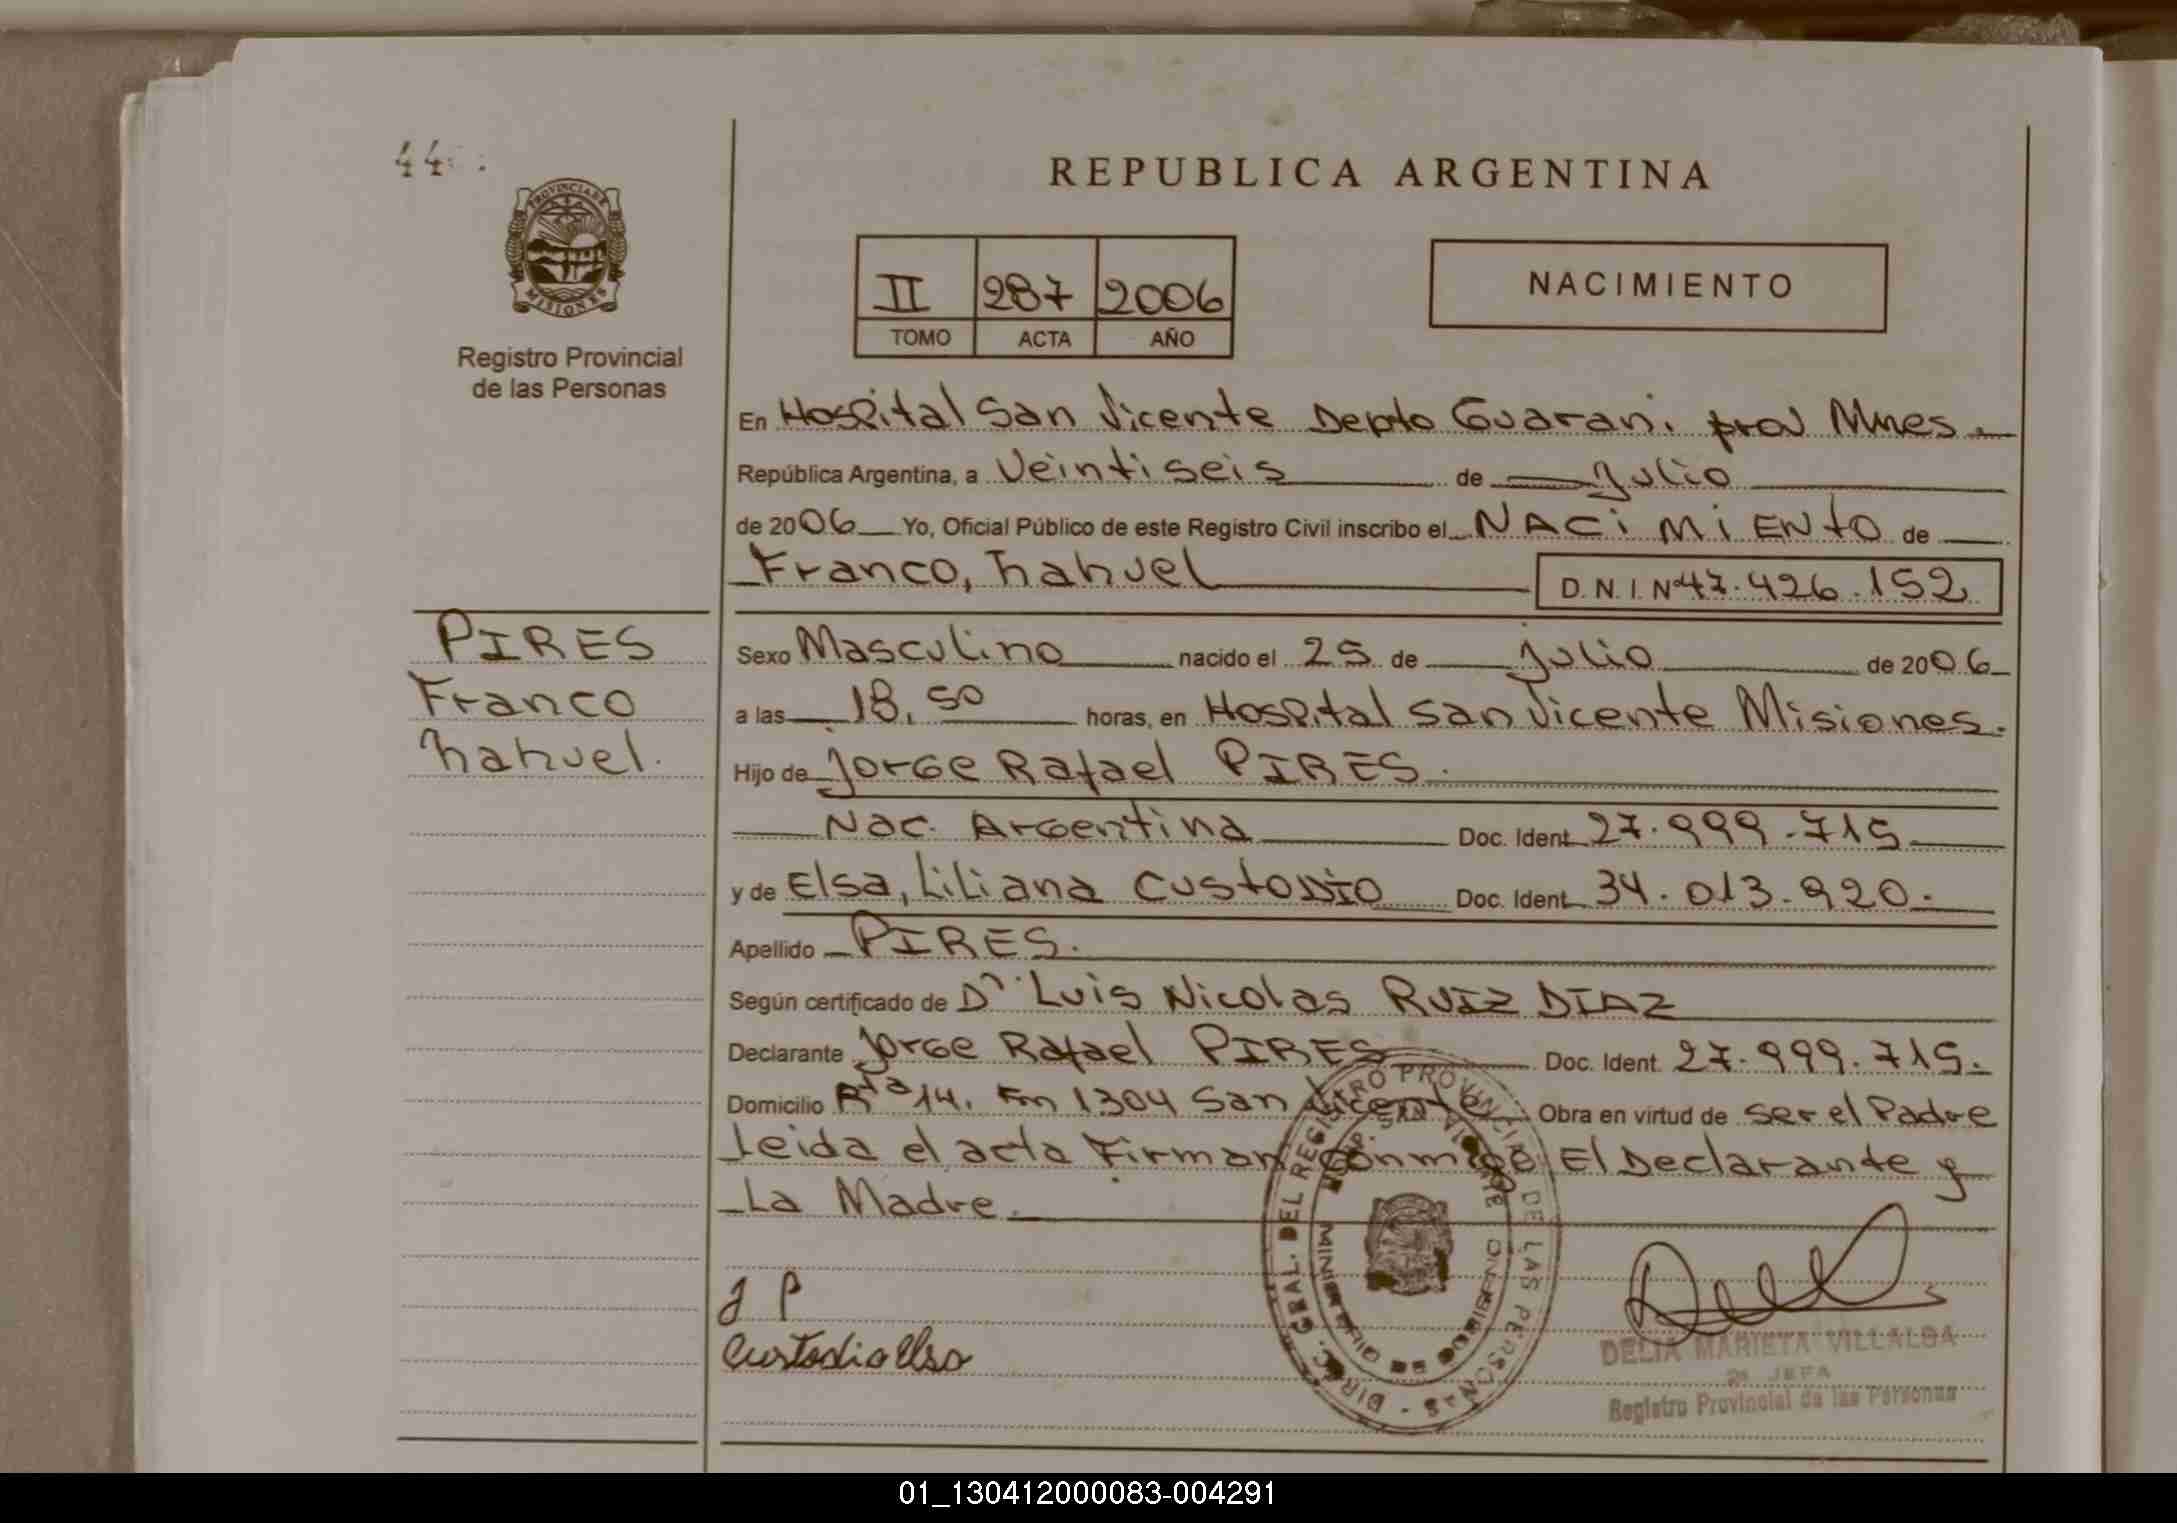 44
PROVINCIA DE
MISIONES
Registro Provincial
de las Personas
REPUBLICA ARGENTINA
II 287 2006
TOMO ACTA AÑO
NACIMIENTO
En Hospital San Vicente Depto Guarani prov Mnes.
República Argentina, a Veintiseis de julio
de 2006 Yo, Oficial Público de este Registro Civil inscribo el NACiMiENtO de
Franco, nahuel D.N.I. Nº 47.426.152
PIRES
Franco
nahuel.
Sexo Masculino nacido el 25 de julio de 2006
a las 18,50 horas, en Hospital San Vicente Misiones.
Hijo de jorGe Rafael PIRES.
Nac. Argentina Doc. Ident. 27.999.715
y de Elsa, Liliana CustoDIO Doc. Ident. 34.013.920.
Apellido PIRES.
Según certificado de Dr. Luis Nicolas RUIZ DIAZ
Declarante jorGe Rafael PIRES Doc. Ident. 27.999.715.
Domicilio Rta 14. Km 1304 San Vicente Obra en virtud de ser el Padre
leida el acta Firman conmigo El Declarante y
La Madre.
J P
Custodio Elsa
DIREC. GRAL. DEL REGISTRO PROVINCIAL DE LAS PERSONAS
HOSP. SAN VICENTE
MINISTERIO DE GOBIERNO
DELIA MARIETA VILLALBA
2ª JEFA
Registro Provincial de las Personas
01_130412000083-004291